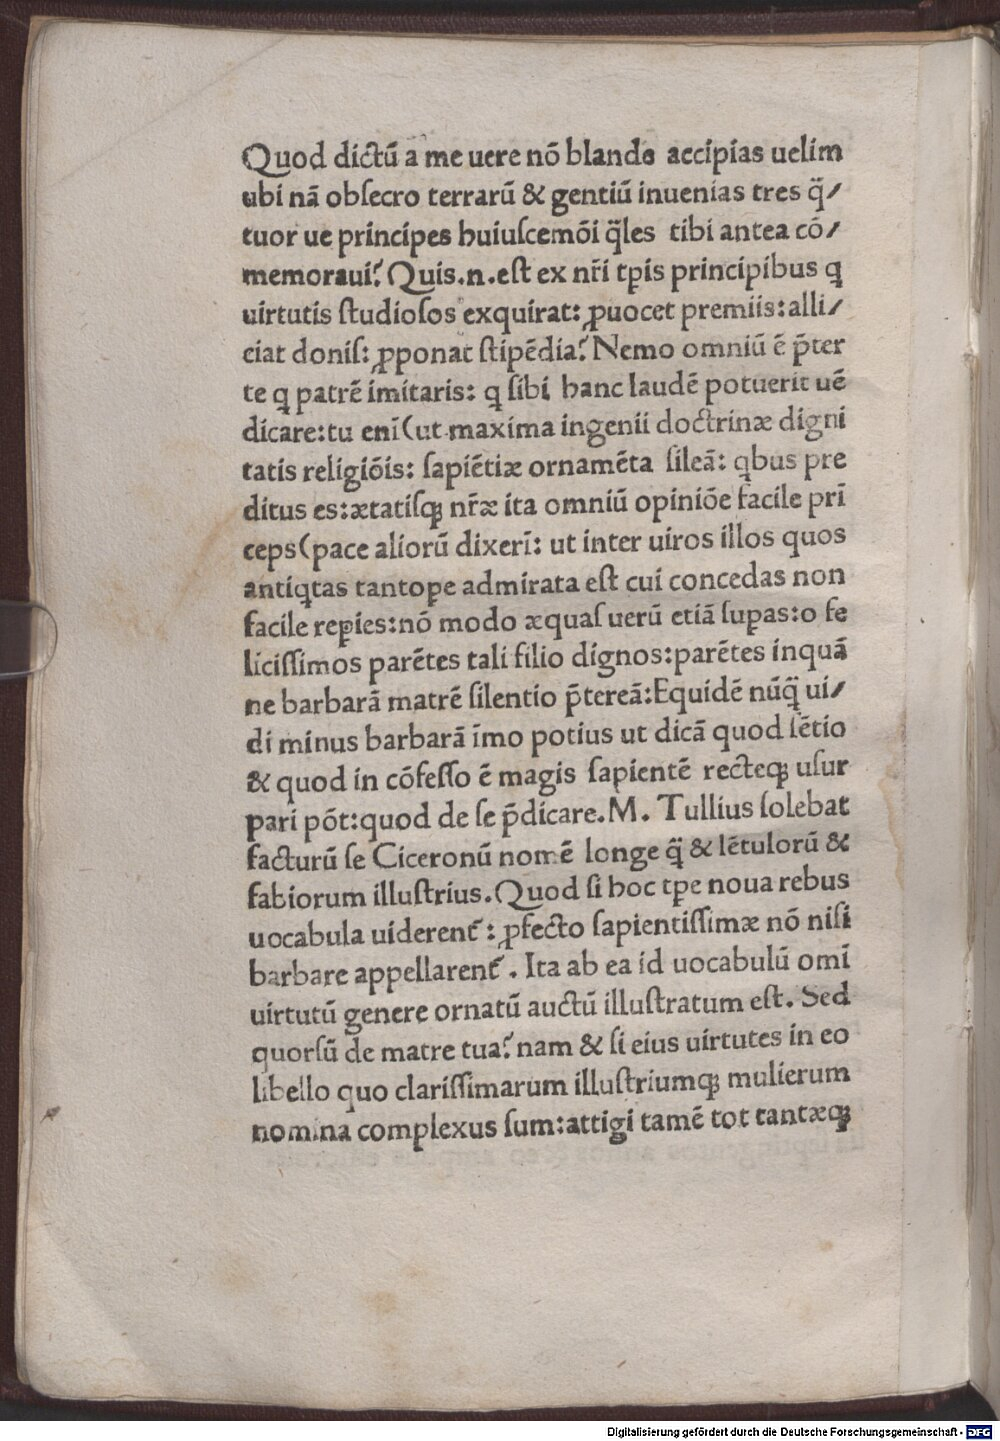 Quod dictū a me uere nō blande accipias uelim
ubi nā obſecro terrarū & gentiū inuenias tres q̈/
tuor ue principes huiuſcemōi q̈les tibi antea cō/
memoraui? Quis.n.eſt ex nr̄i tp̄is principibus ꝗ
uirtutis ſtudioſos exquirat: ꝓuocet premiis:alli/
ciat doniſ: ꝓponat ſtipēdia? Nemo omniū ē p̄ter
te ꝗ patrē imitaris: ꝗ ſibi hanc laudē potuerit uē
dicare:tu enī(ut maxima ingenii doctrinæ digni
tatis religiōis: ſapiētiæ ornamēta ſileā: ꝗbus pre
ditus es:ætatiſqꝫ nr̄æ ita omniū opiniōe facile prī
ceps(pace aliorū dixerī: ut inter uiros illos quos
antiꝗtas tantoꝑe admirata eſt cui concedas non
facile reꝑies:nō modo æquaſ uerū etiā ſuꝑas:o fe
liciſſimos parētes tali filio dignos:parētes inquā
ne barbarā matrē ſilentio p̄tereā:Equidē nūq̈ ui/
di minus barbarā īmo potius ut dicā quod ſētio
& quod in cōfeſſo ē magis ſapientē recteqꝫ uſur
pari pōt:quod de ſe p̄dicare.M. Tullius ſolebat
facturū ſe Ciceronū nomē longe q̈ & lētulorū &
fabiorum illuſtrius.Quod ſi hoc tꝑe noua rebus
uocabula uiderent᷑: ꝓfecto ſapientiſſimæ nō niſi
barbare appellarent᷑. Ita ab ea id uocabulū omī
uirtutū genere ornatū auctū illuſtratum eſt. Sed
quorſū de matre tua? nam & ſi eius uirtutes in eo
libello quo clariſſimarum illuſtriumqꝫ mulierum
nomina complexus ſum:attigi tamē tot tantæqꝫ
Digitalisierung gefördert durch die Deutsche Forschungsgemeinschaft - DFG